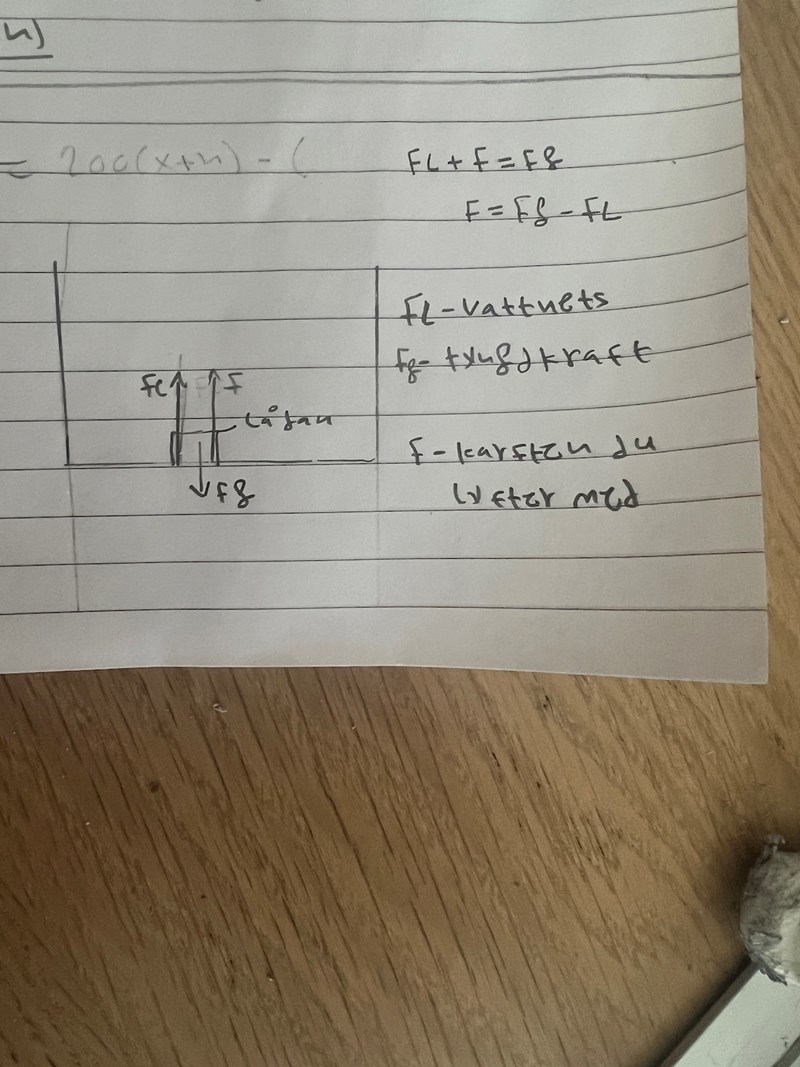 n)
= 200(x+n) - (
FL + F = Fg
F = Fg - FL
FL - vattnets
Fg - tyngdkraft
FL F
lådan
Fg
F - kraften du
lyfter med